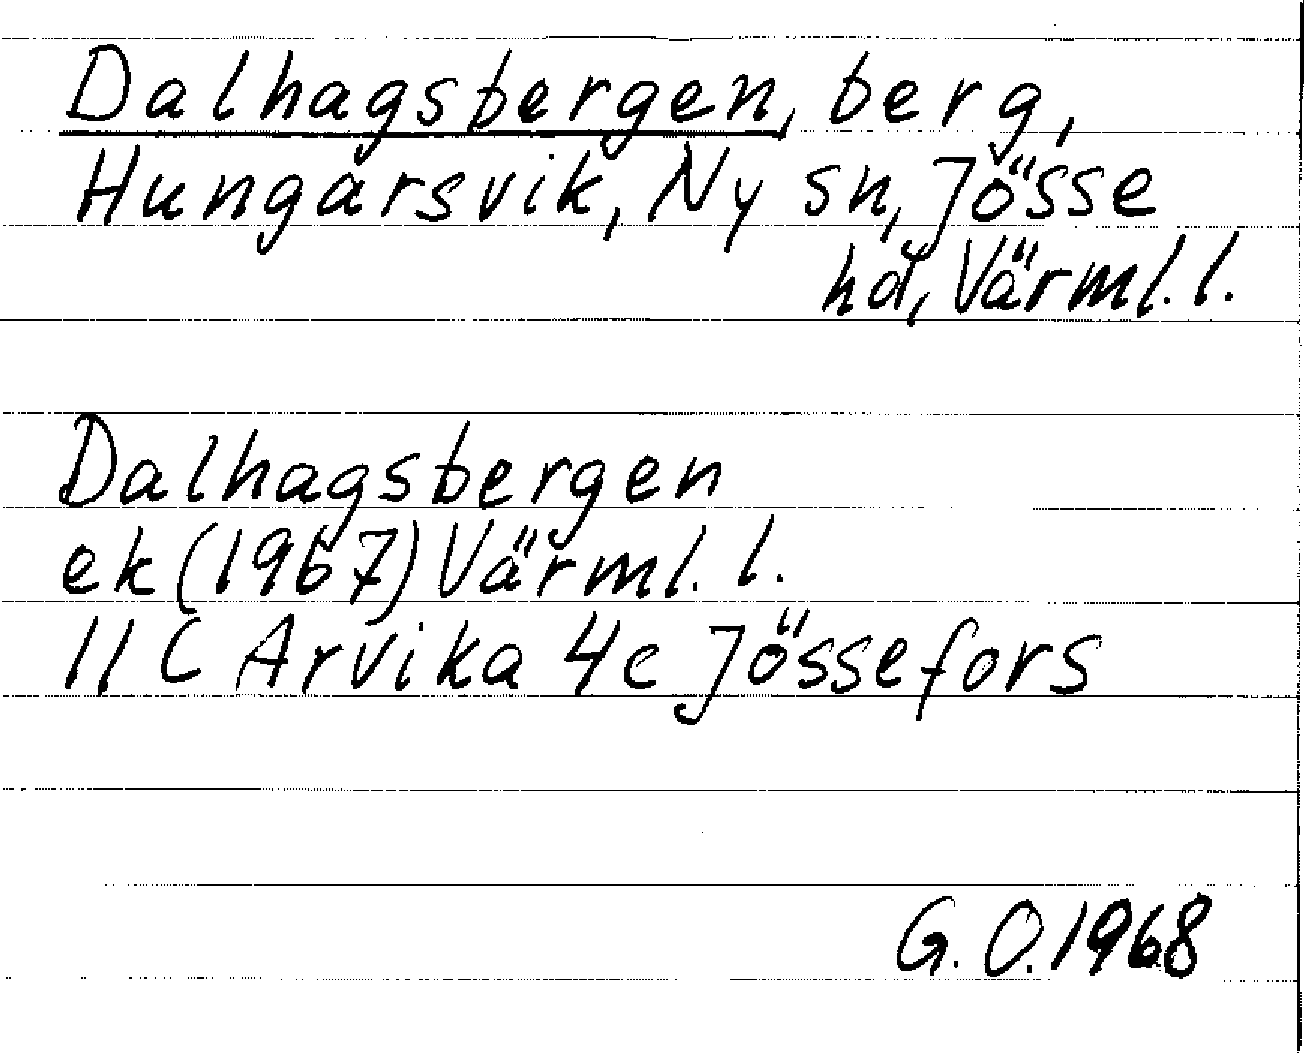 Dalhagsbergen, berg,
Hungarsvik, Ny sn, Jösse
hd, Värml. l.
Dalhagsbergen
ek (1967) Värml. l.
11 C Arvika 4c Jössefors
G. O. 1968